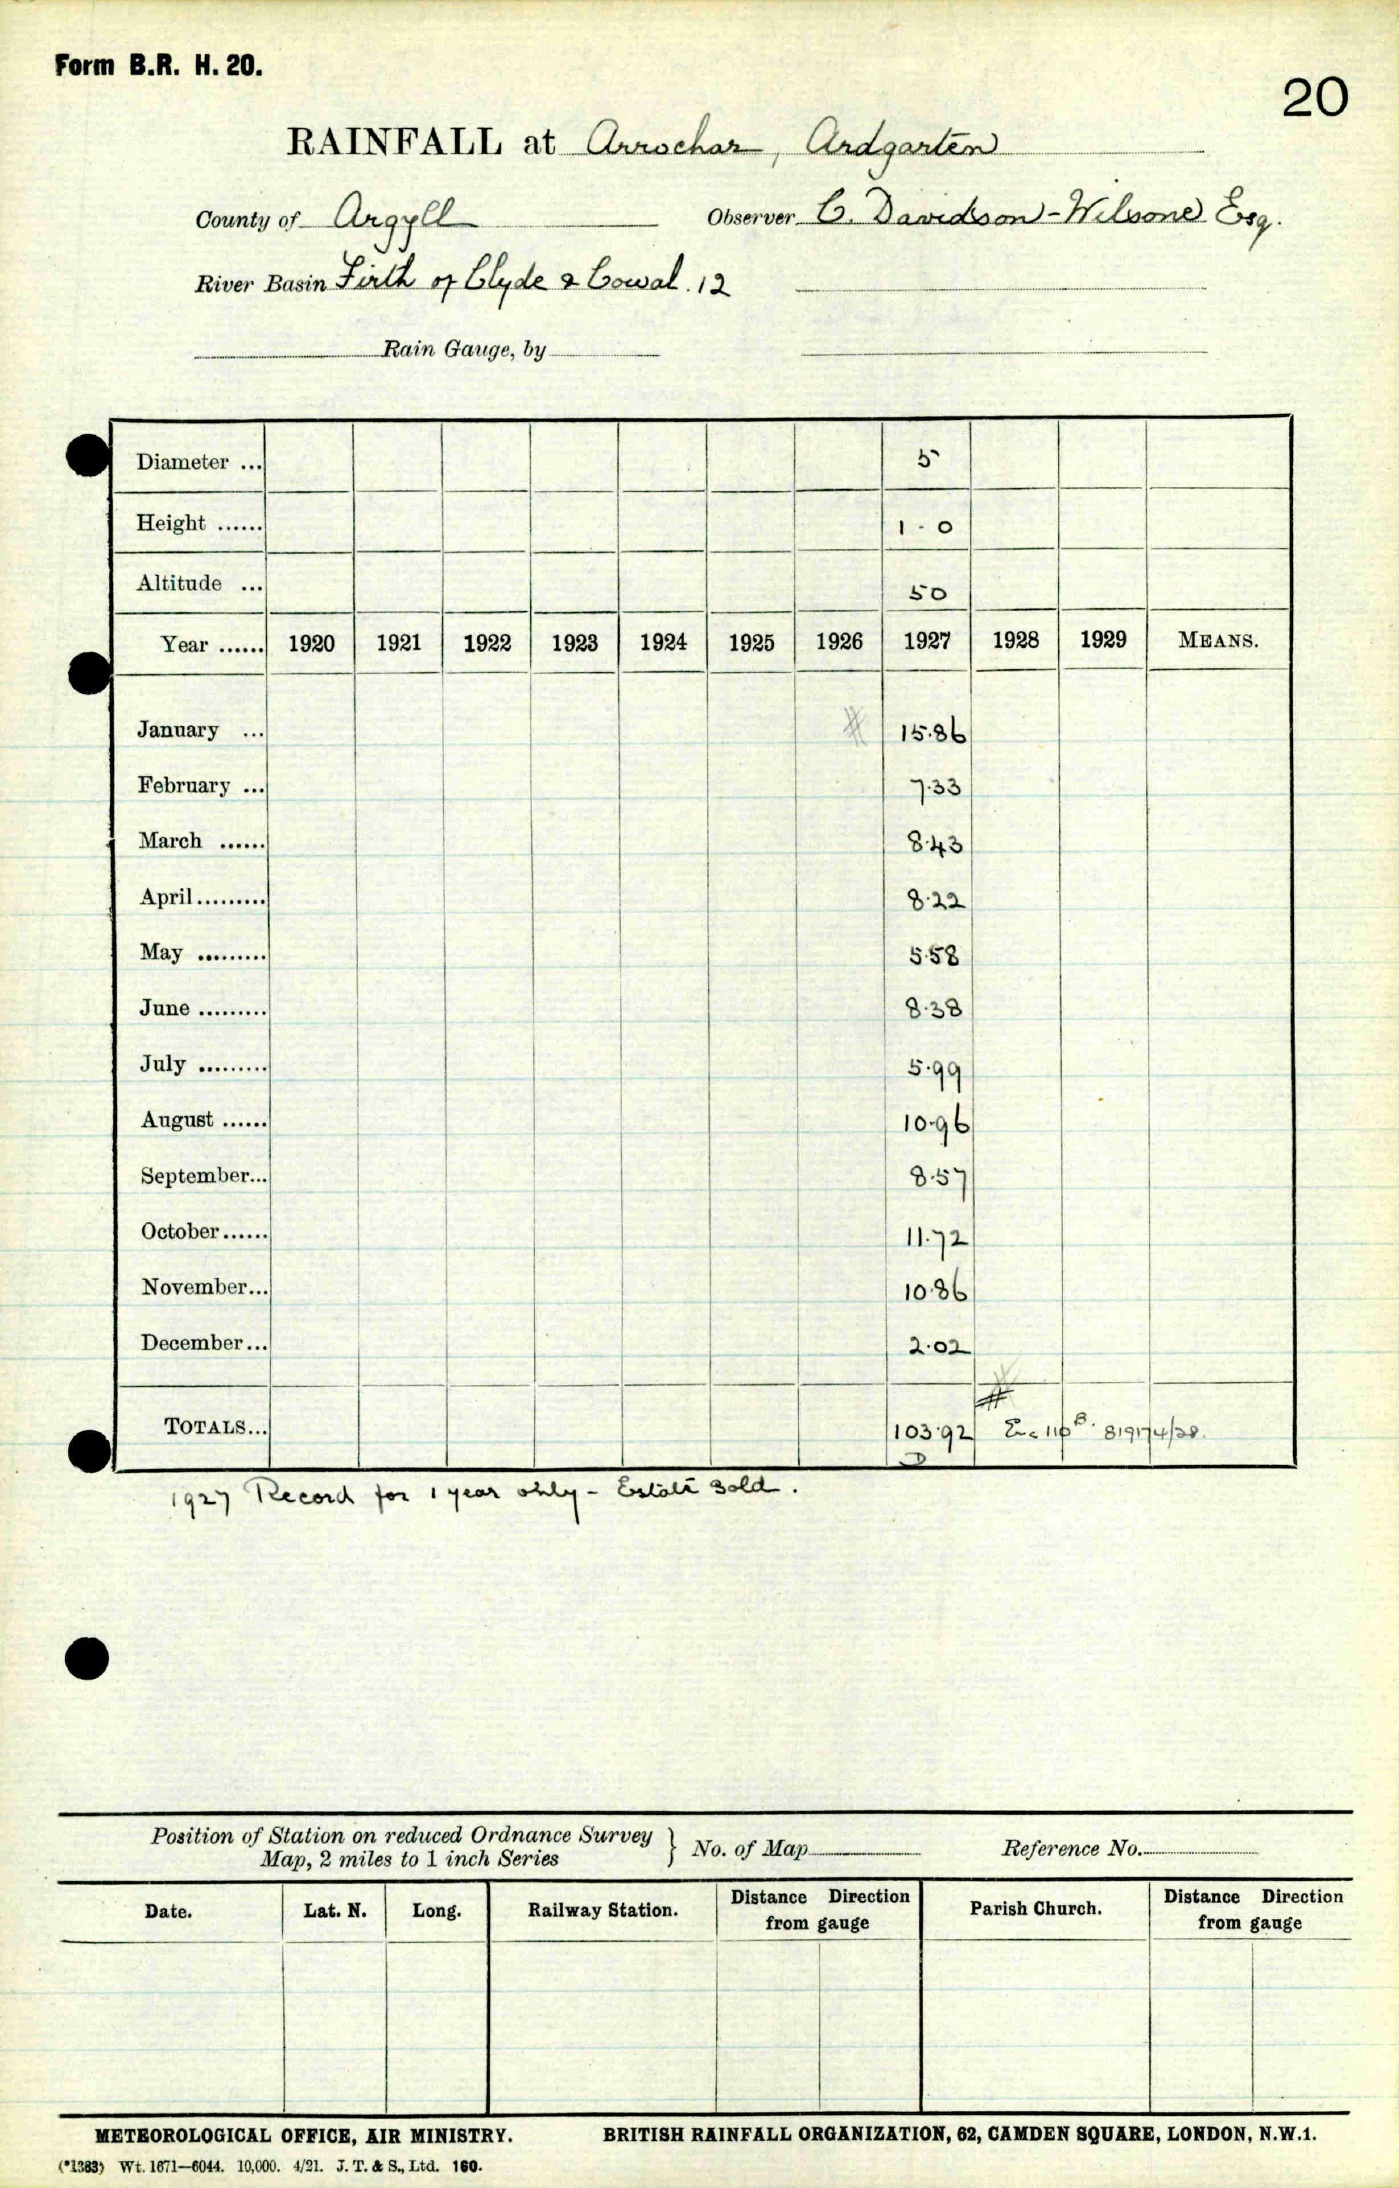 Form B.R. H. 20.
20
RAINFALL at Arrochar, Ardgarten
County of Argyll Observer C. Davidson-Wilsone Esq.
River Basin Firth of Clyde & Cowal. 12
Rain Gauge, by
Diameter ... 5
Height ...... 1-0
Altitude ... 50
Year ...... 1920 1921 1922 1923 1924 1925 1926 1927 1928 1929 MEANS.
January ... # 15.86
February ... 7.33
March ...... 8.43
April......... 8.22
May ......... 5.58
June ......... 8.38
July ......... 5.99
August ...... 10.96
September... 8.57
October...... 11.72
November... 10.86
December... 2.02
#
TOTALS... 103.92 110 B. 819174/28.
D
1927 Record for 1 year only - Estate sold.
Position of Station on reduced Ordnance Survey } No. of Map Reference No.
Map, 2 miles to 1 inch Series
Date. Lat. N. Long. Railway Station. Distance Direction from gauge Parish Church. Distance Direction from gauge
METEOROLOGICAL OFFICE, AIR MINISTRY. BRITISH RAINFALL ORGANIZATION, 62, CAMDEN SQUARE, LONDON, N.W.1.
(*1383) Wt. 1671—6044. 10,000. 4/21. J. T. & S., Ltd. 160.